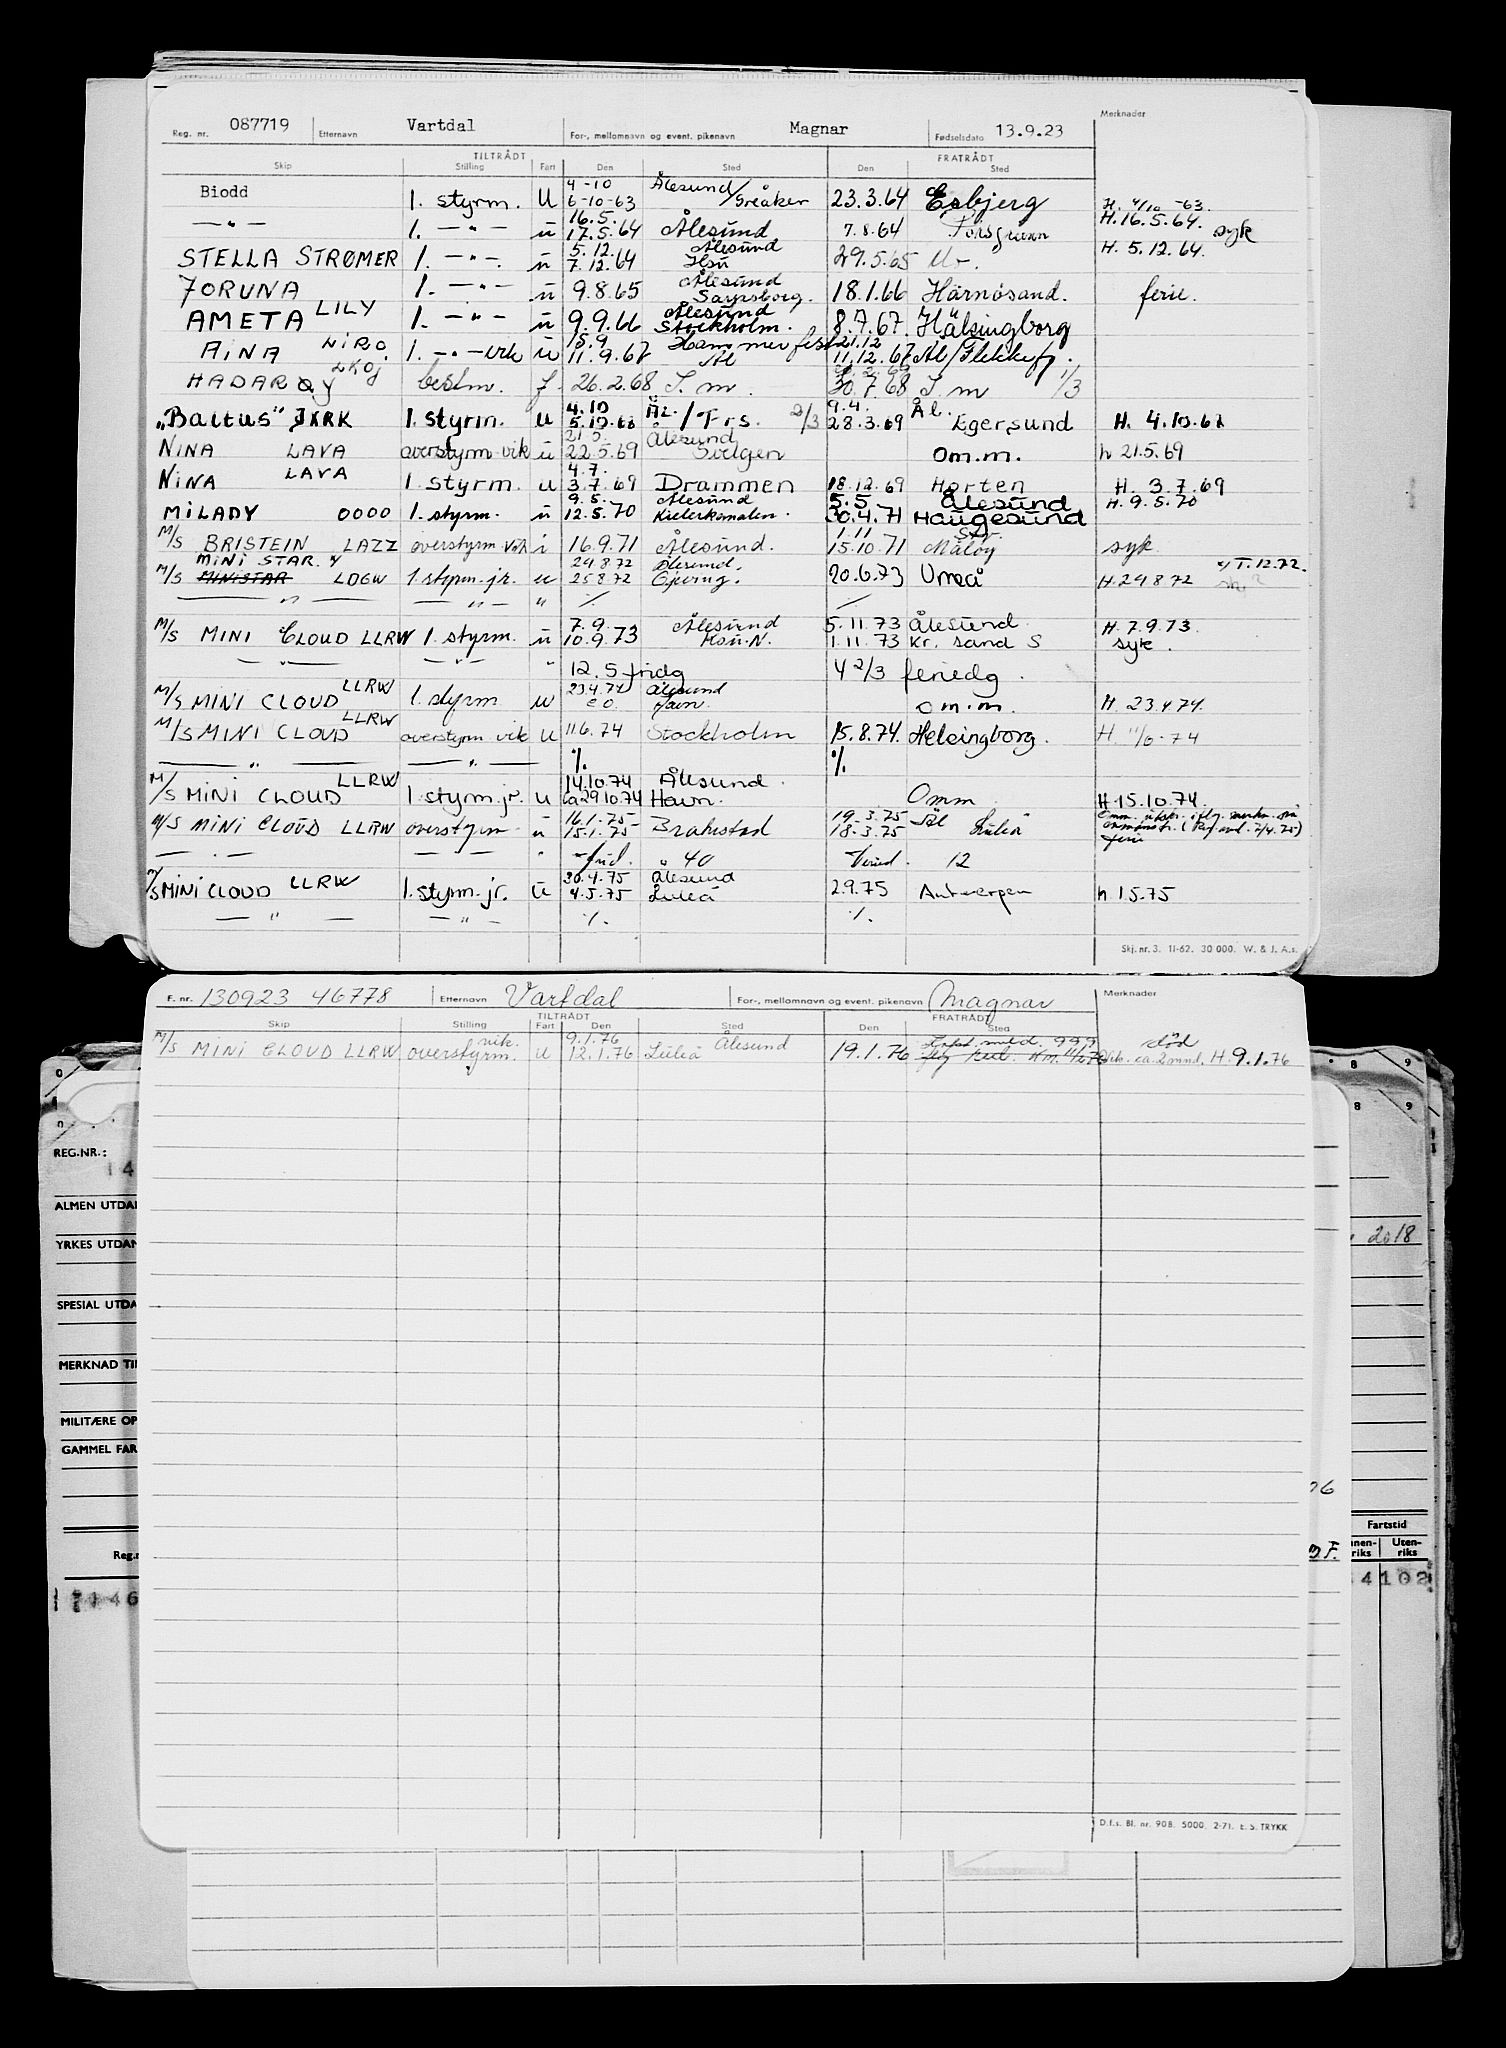 Reg. nr. 087719 Etternavn Vartdal For-, mellomnavn og event. pikenavn Magnar Fødselsdato 13.9.23 Merknader
TILTRÅDT FRATRÅDT
Skip Stilling Fart Den Sted Den Sted
4-10 Ålesund/
Biodd 1. styrm. U 6-10-63 Greåker 23.3.64 Esbjerg H. 4/10-63.
16.5. H.16.5.64.
— " — 1. — " — u 17.5.64 Ålesund 7.8.64 Porsgrunn syk
5.12. Ålesund H. 5.12.64.
STELLA STRØMER 1. — " — u 7.12.64 29.5.65
Ålesund
JORUNA 1. — " — u 9.8.65 Sarpsborg. 18.1.66 Härnösand. ferie.
Ålesund
AMETA LILY 1. — " — u 9.9.66 Stockholm. 8.7.67. Hälsingborg
15.9 Hammerfest 21.12
AINA LIRO 1. — " — vik u 11.9.67 Ål 11.12.67 Ål/Flekkefj.
HADARØY LKOJ bestm. f. 26.2.68 S.m. 30.7.68 S.m 1/3
4.10 Ål./ 9.4. Ål.
"Baltus" JXRK 1. styrm. u 5.10.68 Frs. 2/3 28.3.69 Egersund H. 4.10.68
21.5. Ålesund
NINA LAVA overstyrm vik u 22.5.69 Svelgen om.m. h 21.5.69
4.7.
NINA LAVA 1. styrm. u 3.7.69 Drammen 18.12.69 Horten H. 3.7.69
9.5. Ålesund 5.5 Ålesund H. 9.5.70
MILADY OOOO 1. styrm. u 12.5.70 Kielerkanalen. 30.4.71 Haugesund
1.11
M/S BRISTEIN LAZZ overstyrm. vik i 16.9.71 Ålesund. 15.10.71 Måløy syk
MINI STAR. 24.8.72 Ålesund. T.12.72.
M/S MINISTAR LDGW 1. styrm. jr. u 25.8.72 20.6.73 Umeå H. 24 8 72
— " — — " — " % %
7.9. Ålesund 5.11.73 Ålesund. H. 7.9.73.
M/S MINI CLOUD LLRW 1. styrm. u 10.9.73 1.11.73 Kr. sand S syk.
— " — — " — " 12.5 fridg 4 2/3 feriedg.
LLRW 23.4.74 Ålesund
M/S MINI CLOUD 1. styrm u e.o. Havn. om.m. H. 23.4.74.
LLRW
M/S MINI CLOUD overstyrm vik u 11.6.74 Stockholm 15.8.74. Helsingborg. H. 11/6-74
— " — — " — % %
LLRW 14.10.74 Ålesund.
M/S MINI CLOUD 1. styrm. jr. u ca 29.10.74 Havn. Omm H 15.10.74.
16.1.75 19.3.75 Ål
M/S MINI CLOUD LLRW overstyrm. u 15.1.75 Brahestad 18.3.75 Luleå
ferie
— " — — — " frid. 40 feried. 12
LLRW 30.4.75 Ålesund
M/S MINI CLOUD 1. styrm. jr. u 4.5.75 Luleå 2.9.75 Antwerpen h 1.5.75
— " — — " — % %
Skj. nr. 3. 11-62. 30 000. W. & J. A.s.
F. nr. 130923 46778 Etternavn Vartdal For-, mellomnavn og event. pikenavn Magnar Merknader
TILTRÅDT FRATRÅDT
Skip Stilling Fart Den Sted Den Sted
vik. 9.1.76 Ålesund død
M/S MINI CLOUD LLRW overstyrm. u 12.1.76 Luleå 19.1.76 ca. 2 mnd. H. 9.1.76
D.f.s. Bl. nr. 908. 5000. 2-71. E. S. TRYKK
8 9
8 9
REG.NR.:
14
ALMEN UTDA
YRKES UTDAN
2018
SPESIAL UTDA
MERKNAD TI
MILITÆRE OP
GAMMEL FAR
Fartstid
Reg.n
nen- Uten-
riks riks
4102